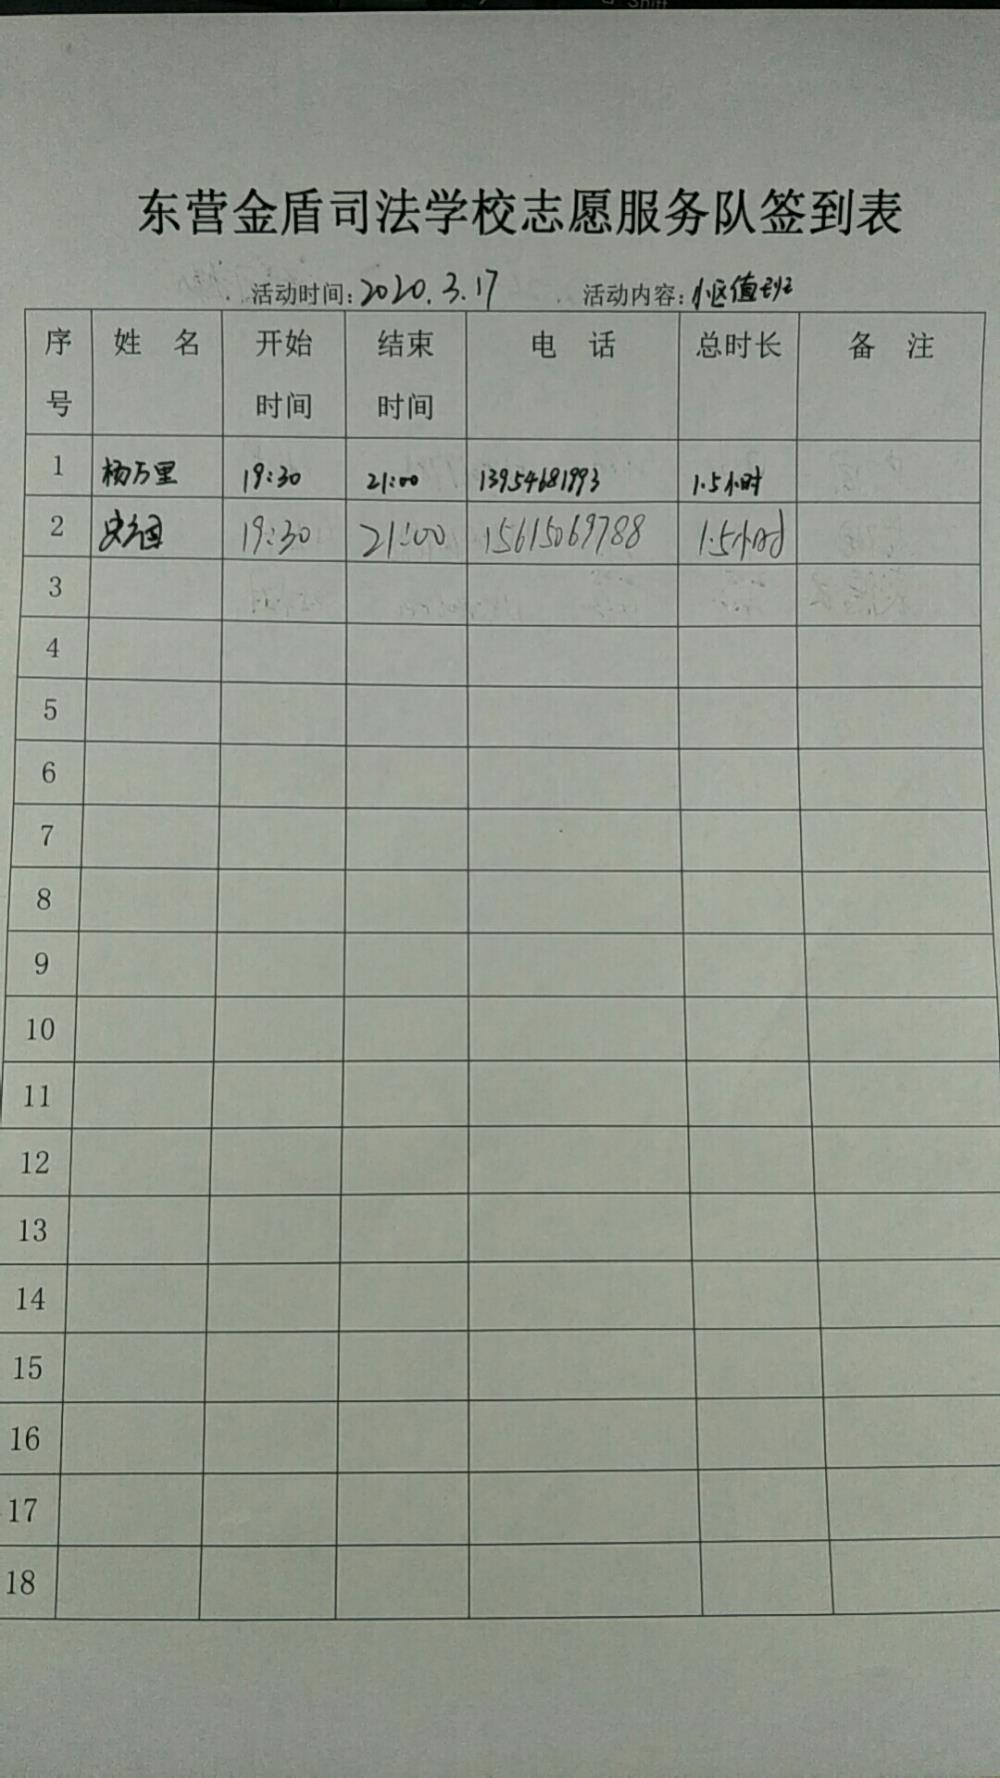 东营金盾司法学校志愿服务队签到表
活动时间：2020.3.17 活动内容：小区值班
序号 姓 名 开始时间 结束时间 电 话 总时长 备 注
1 杨万里 19:30 21:00 13954681993 1.5小时
2 19:30 21:00 15615069788 1.5小时
3
4
5
6
7
8
9
10
11
12
13
14
15
16
17
18